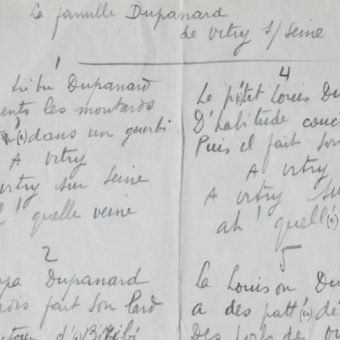 La famille Dupanard
de Vitry s/ Seine
1
tribu Dupanard
les moutards
(.) dans un gourbi
A Vitry
Vitry sur Seine
! quelle veine
2
Dupanard
fait son lard
4
Le p'tit Louis Du
D'habitude couc
Puis il fait son
A Vitry
A Vitry su
ah ! quell(.)
5
La Louison Du
a des patt(.) dé
Des